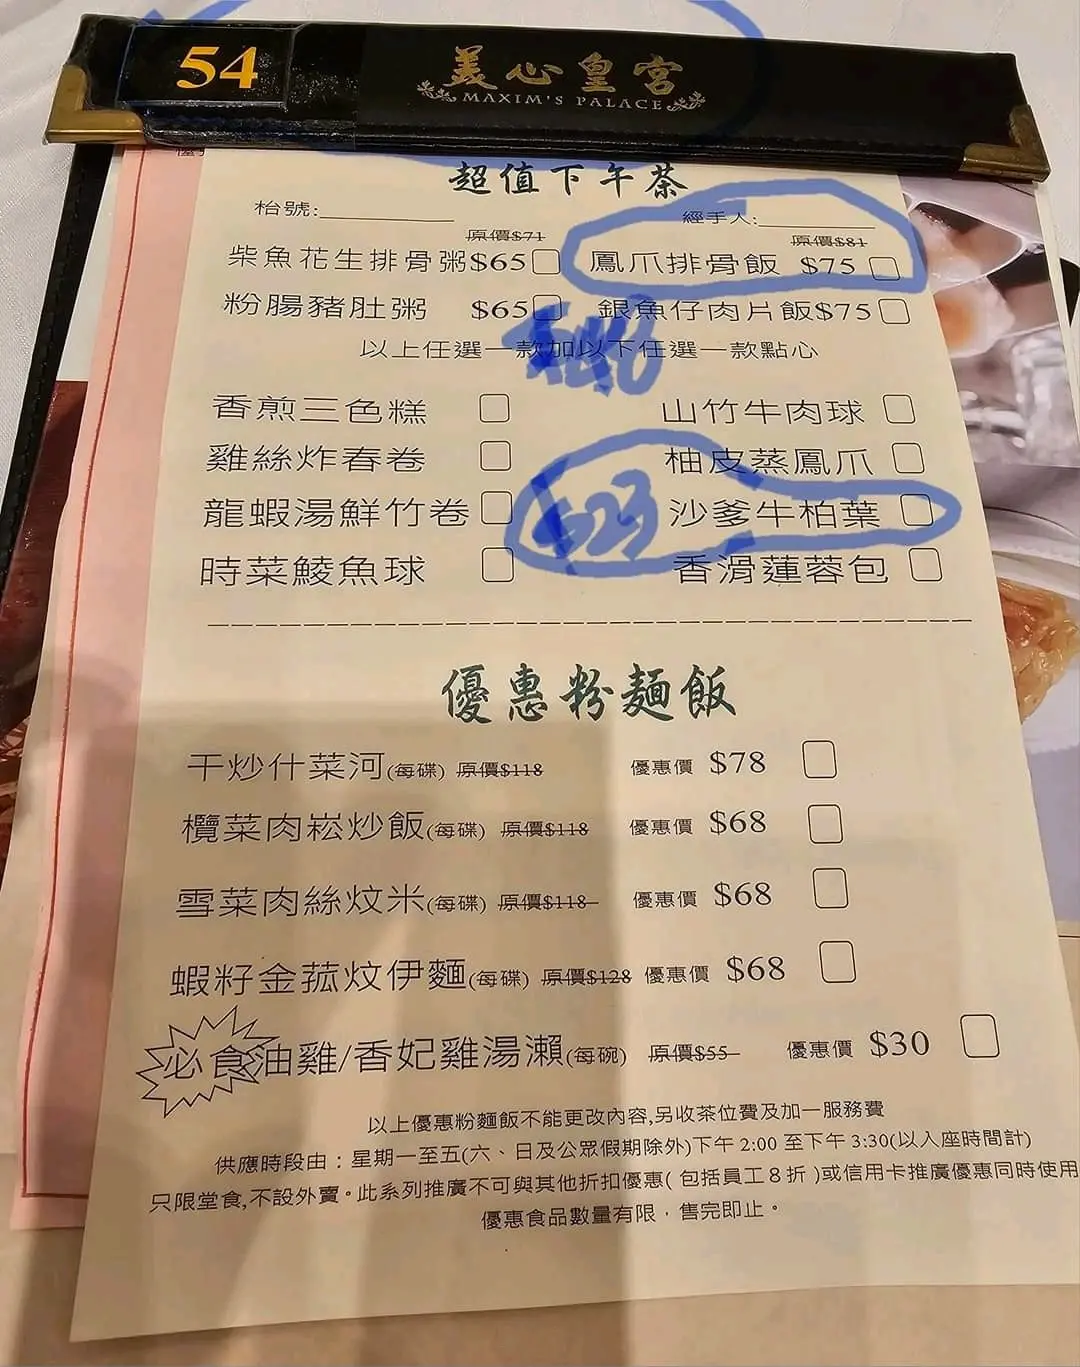 54
美心皇宮
MAXIM'S PALACE
超值下午茶
枱號:
經手人:
原價$71
原價$81
柴魚花生排骨粥$65
鳳爪排骨飯 $75
粉腸豬肚粥 $65
銀魚仔肉片飯$75
以上任選一款加以下任選一款點心
香煎三色糕
山竹牛肉球
雞絲炸春卷
柚皮蒸鳳爪
龍蝦湯鮮竹卷
$23
沙爹牛柏葉
時菜鯪魚球
香滑蓮蓉包
優惠粉麵飯
干炒什菜河(每碟) 原價$118 優惠價 $78
欖菜肉崧炒飯(每碟) 原價$118 優惠價 $68
雪菜肉絲炆米(每碟) 原價$118 優惠價 $68
蝦籽金菰炆伊麵(每碟) 原價$128 優惠價 $68
必食油雞/香妃雞湯瀨(每碗) 原價$55 優惠價 $30
以上優惠粉麵飯不能更改內容,另收茶位費及加一服務費
供應時段由：星期一至五(六、日及公眾假期除外)下午 2:00 至下午 3:30(以入座時間計)
只限堂食,不設外賣。此系列推廣不可與其他折扣優惠(包括員工8折)或信用卡推廣優惠同時使用
優惠食品數量有限，售完即止。